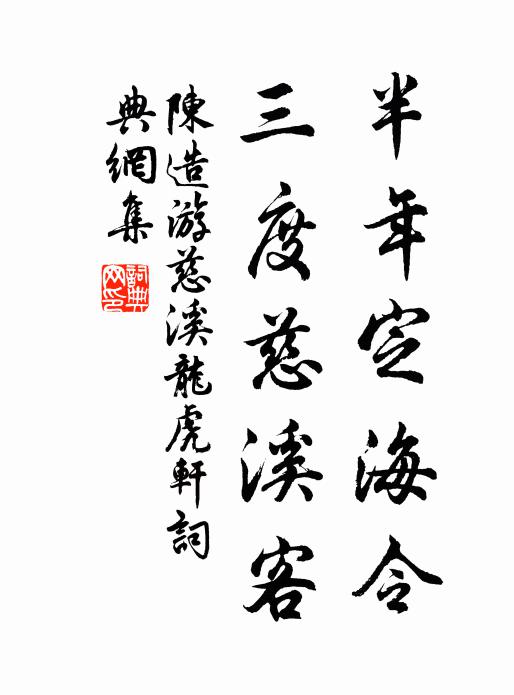 半年定海令
三度慈溪客
陳造游慈溪龍虎軒詞
典網集
詞典
网印